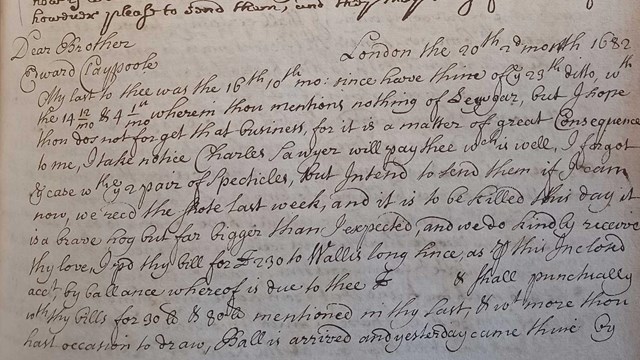 however please to send them, and they
Dear Brother
London the 20th 2d month 1682
Edward Claypoole
My last to thee was the 16th 10th mo: since have thine of ye 23th ditto, wth
the 14 12/mo & 4 1st/mo wherein thou mentions nothing of Sewgar, but I hope
thou dos not forget that business, for it is a matter of great Consequence
to me, I take notice Charles Sawyer will pay thee wch is well, I forgot
ye case wth ye 2 pair of Specticles, but Intend to send them if I can
now, we recd the shote last week, and it is to be killed this day it
is a brave hog but far bigger than I expected, and we do kindly receive
thy love, I pd thy bill for £230 to Wallis long since, as p this Inclosd
acct, by ballance whereof is due to thee £ & shall punctually
thy bills for 30 lb & 80 lb mentioned in thy last, & wt more thou
hast occasion to draw, Ball is arrived and yesterday came thine by